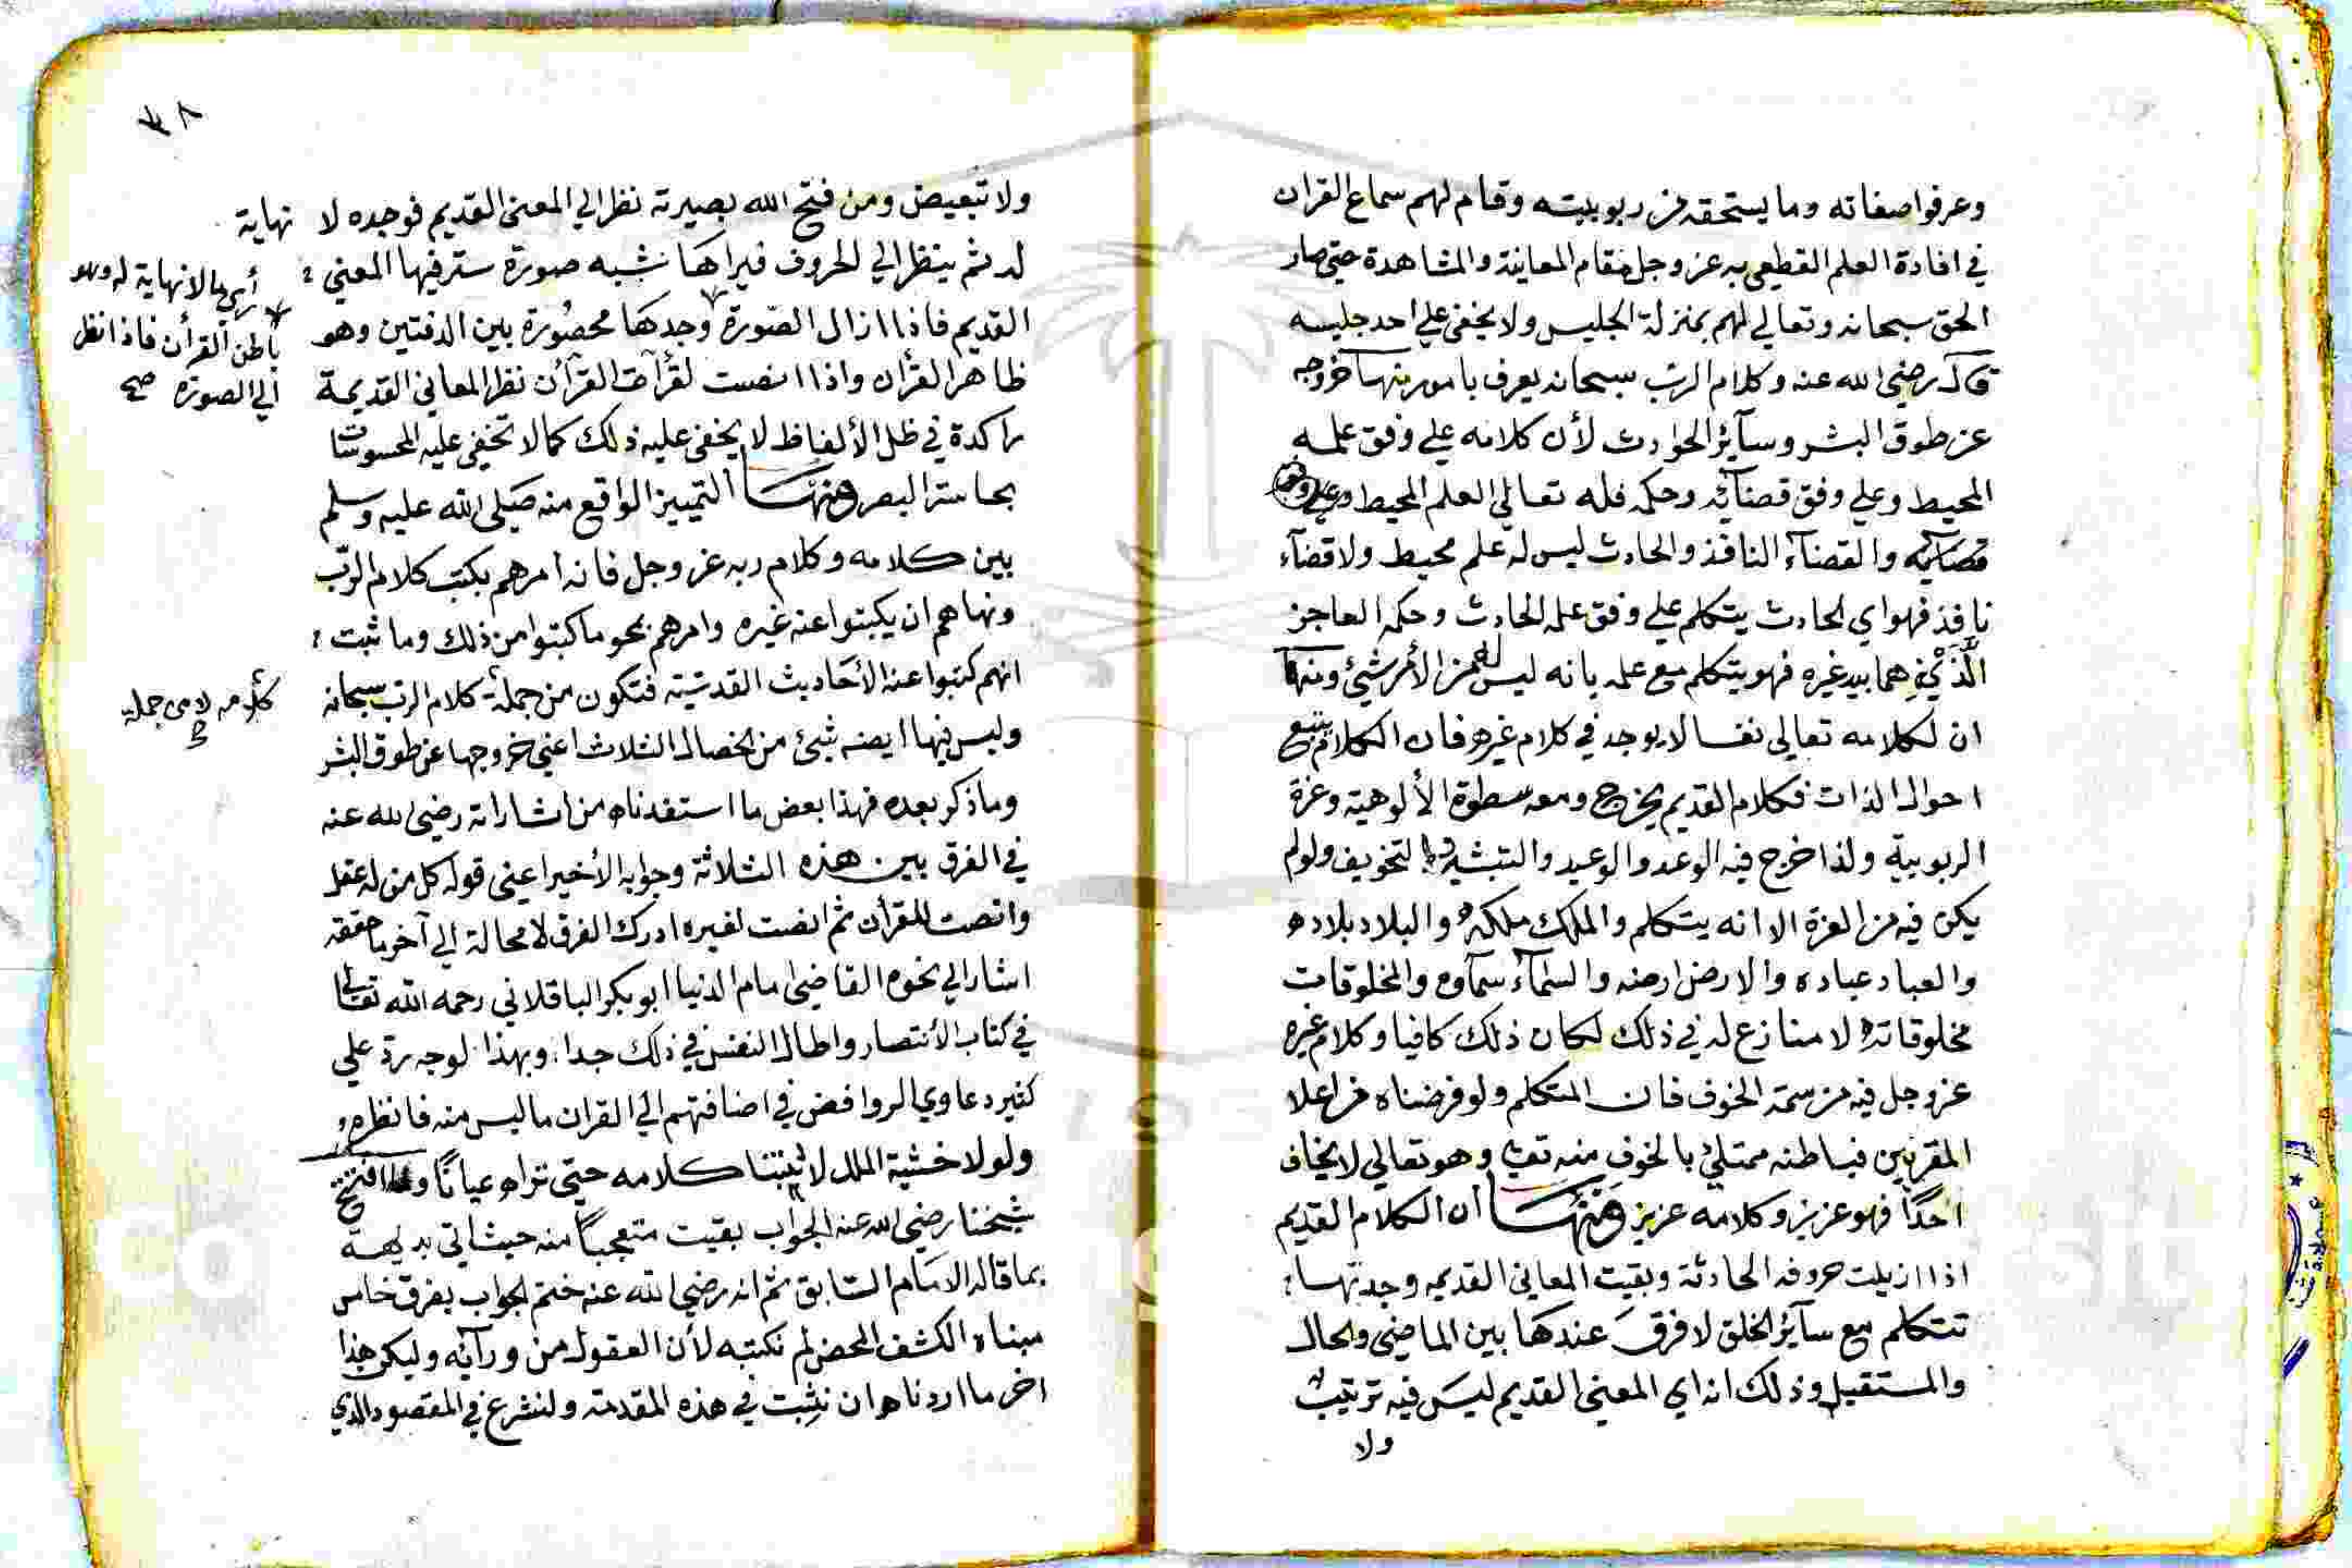 وعرفوا صفاته وما يستحقه من ربوبيته وقام لهم سماع القران
في افادة العلم القطعي به عز وجل مقام المعاينة والمشاهدة حتى صار
الحق سبحانه وتعالى لهم بمنزلة الجليس ولا يخفى علي احد جليسه
قال رضي الله عنه وكلام الرب سبحانه يعرف بامور منها خروجه
عن طوق البشر وسآئر الحوادث لأن كلامه علي وفق علمه
المحيط وعلي وفق قضآئه وحكمه فله تعالى العلم المحيط وعلي وفق
قضآئه والقضآء النافذ والحادث ليس له علم محيط ولا قضآء
نافذ فهو اي الحادث يتكلم علي وفق علمه الحادث وحكمه العاجز
الَّذَيْنِ هما بيد غيره فهو يتكلم مع علمه بانه ليس له من الأمر شيئ ومنها
ان لكلامه تعالى نفسا لا يوجد في كلام غيره فان الكلام يتبع
احوال الذات فكلام القديم يخرج ومعه سطوة الألوهية وعزة
الربوبية ولذا خرج فيه الوعد والوعيد والتبشير والتخويف ولو لم
يكن فيه من العزة الا انه يتكلم والملك ملكه والبلاد بلاده
والعباد عباده والارض ارضه والسمآء سمآوه والمخلوقات
مخلوقاته لا منازع له في ذلك لكان ذلك كافيا وكلام غيره
عز وجل فيه من سمة الخوف فان المتكلم ولو فرضناه من اعلا
المقربين فباطنه ممتلئ بالخوف منه تعالى وهو تعالي لا يخاف
احدًا فهو عزيز وكلامه عزيز ومنها ان الكلام القديم
اذا ازيلت حروفه الحادثة وبقيت المعاني القديمه وجدتها
تتكلم مع سآئر الخلق لا فرق عندها بين الماضي والحال
والمستقبل وذلك انه اي المعنى القديم ليس فيه ترتيب
ولا
ولا تبعيض ومن فتح الله بصيرته نظر الي المعنى القديم فوجده لا نهاية
له ثم ينظر الي الحروف فيراها شبه صورة ستر فيها المعني
القديم فاذا ازال الصورة وجدها محصُورة بين الدفتين وهو
ظاهر القرأن واذا انصت لقرآءة القرآن نظر المعاني القديمة
راكدة في ظل الألفاظ لا يخفى عليه ذلك كما لا تخفى عليه المحسوسات
بحاسة البصر ومنها التمييز الواقع منه صَلى الله عليه وسلم
بين كلامه وكلام ربه عز وجل فانه امرهم بكتب كلام الرّب
ونهاهم ان يكتبوا عنه غيره وامرهم بمحو ما كتبوا من ذلك وما ثبت
انهم كتبوا عنه الأحَاديث القدسّية فتكون من جملة كلام الرب سبحانه
وليس فيها ايضه شيئ من الخصال الثلاث اعني خروجها عن طوق البشر
وما ذكر بعده فهذا بعض ما استفدناه من اشاراته رضي الله عنه
في الفرق بين هذه الثلاثة وجوابه الأخير اعني قوله كل من له عقل
وانصت للقرأن ثم انصت لغيره ادرك الفرق لا محالة الي آخر ما حققه
اشار الي نحوه القاضي امام الدنيا ابو بكر الباقلاني رحمه الله تعالى
في كتاب الأنتصار واطال النفس في ذلك جدا وبهذا الوجه رد علي
كثير دعاوي الروافض في اضافتهم الي القران ما ليس منه فانظره
ولولا خشية الملل لأثبتنا كلامه حتى تراه عيانًا ولما افتتح
شيخنا رضي الله عنه الجواب بقيت متعجبًا منه حيث اتي بديهة
بما قاله الامَام السّابق ثم انه رضي الله عنه ختم الجواب بفرق خامس
مبناه الكشف المحض لم نكتبه لأن العقول من ورآئه وليكن هذا
اخر ما اردناه ان نثبت في هذه المقدمة ولنشرع في المقصود الذي
أي ما لا نهاية له وهو
باطن القرأن فاذا نظر
الي الصورة صح
كلامه لا من جملة
صح